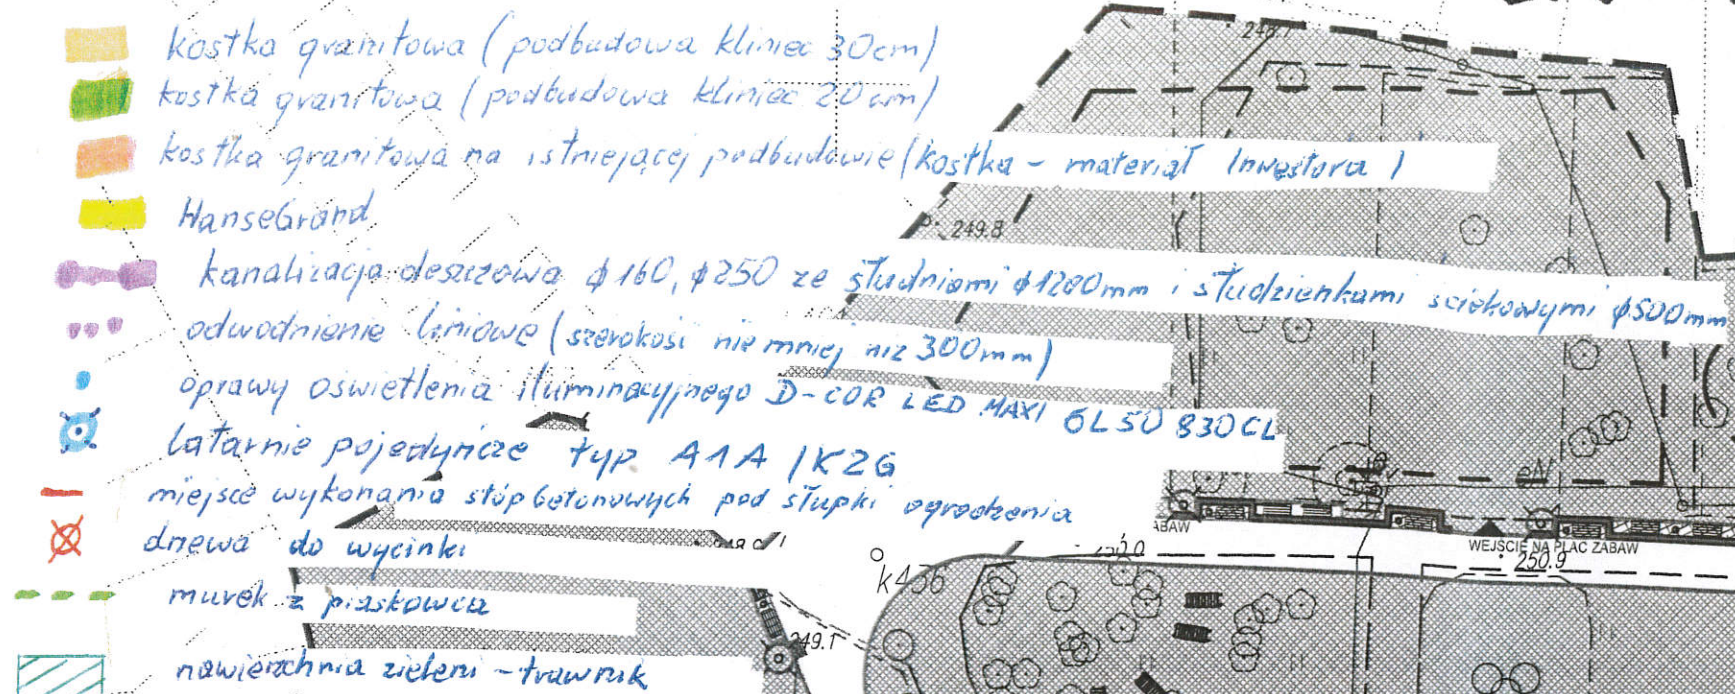 kostka granitowa (podbudowa kliniec 30cm)
kostka granitowa (podbudowa kliniec 20cm)
kostka granitowa na istniejącej podbudowie (kostka - materiał Inwestora)
HanseGrand
kanalizacja deszczowa ϕ160, ϕ250 ze studniami ϕ1200mm i studzienkami ściekowymi ϕ500mm
odwodnienie liniowe (szerokość nie mniej niż 300mm)
oprawy oświetlenia iluminacyjnego D-COR LED MAXI GL50 830 CL
latarnie pojedyncze typ A1A /K2G
miejsce wykonania stóp betonowych pod słupki ogrodzenia
drzewa do wycinki
murek z piaskowca
nawierzchnia zieleni - trawnik
249.8
eN
ABAW
WEJŚCIE NA PLAC ZABAW
250.9
k456
249.1